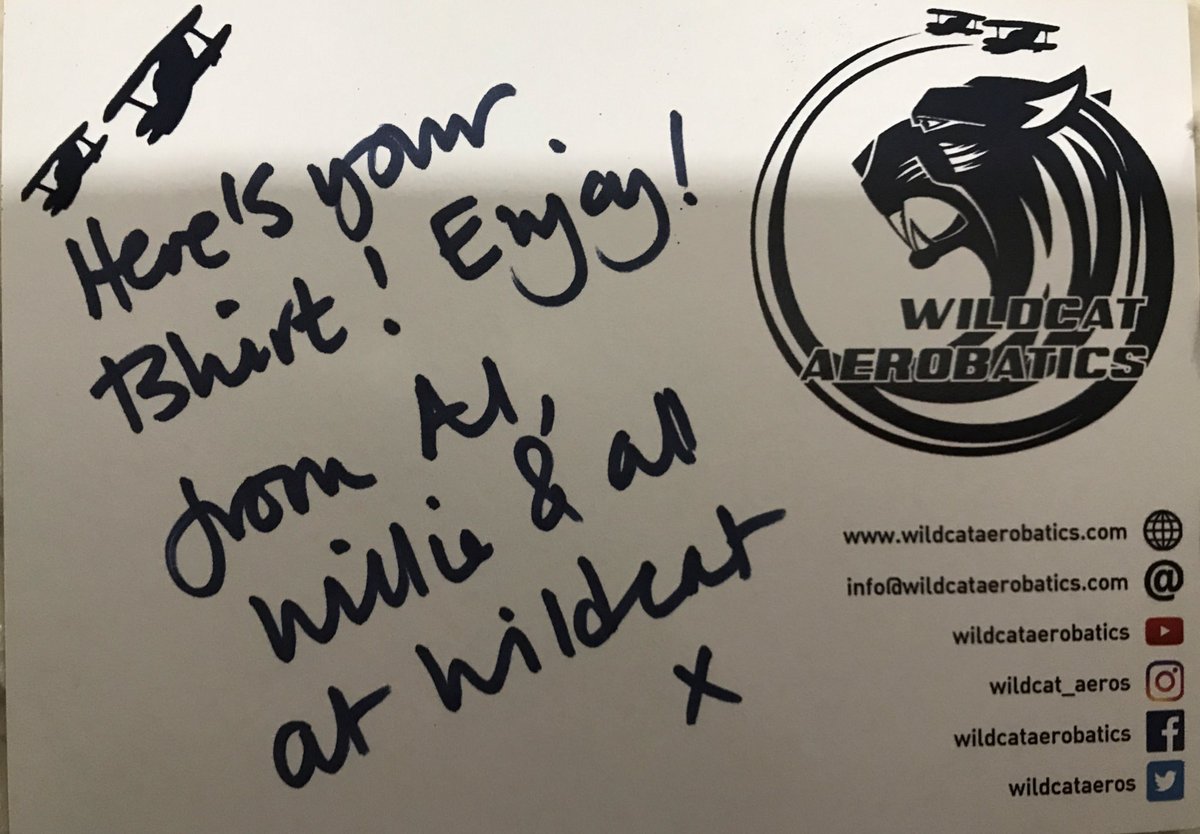 Here's your
Tshirt! Enjoy!
from Al,
Willie & all
at Wildcat
x
WILDCAT
AEROBATICS
www.wildcataerobatics.com
info@wildcataerobatics.com
wildcataerobatics
wildcat_aeros
wildcataerobatics
wildcataeros